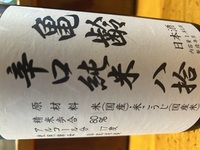 亀齢
辛口純米八拾
日本酒
原材料 米(国産)米こうじ(国産米)
精米歩合 80%
アルコール分 17度